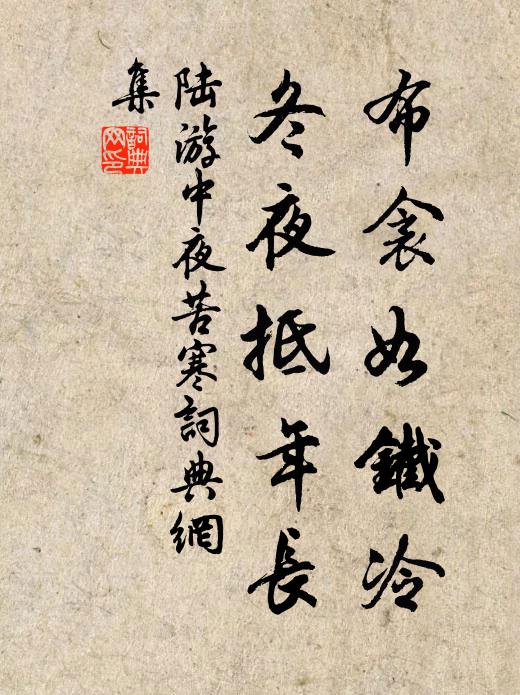 布衾如鐵冷
冬夜抵年長
陆游中夜苦寒詞典網
集
詞典
网印